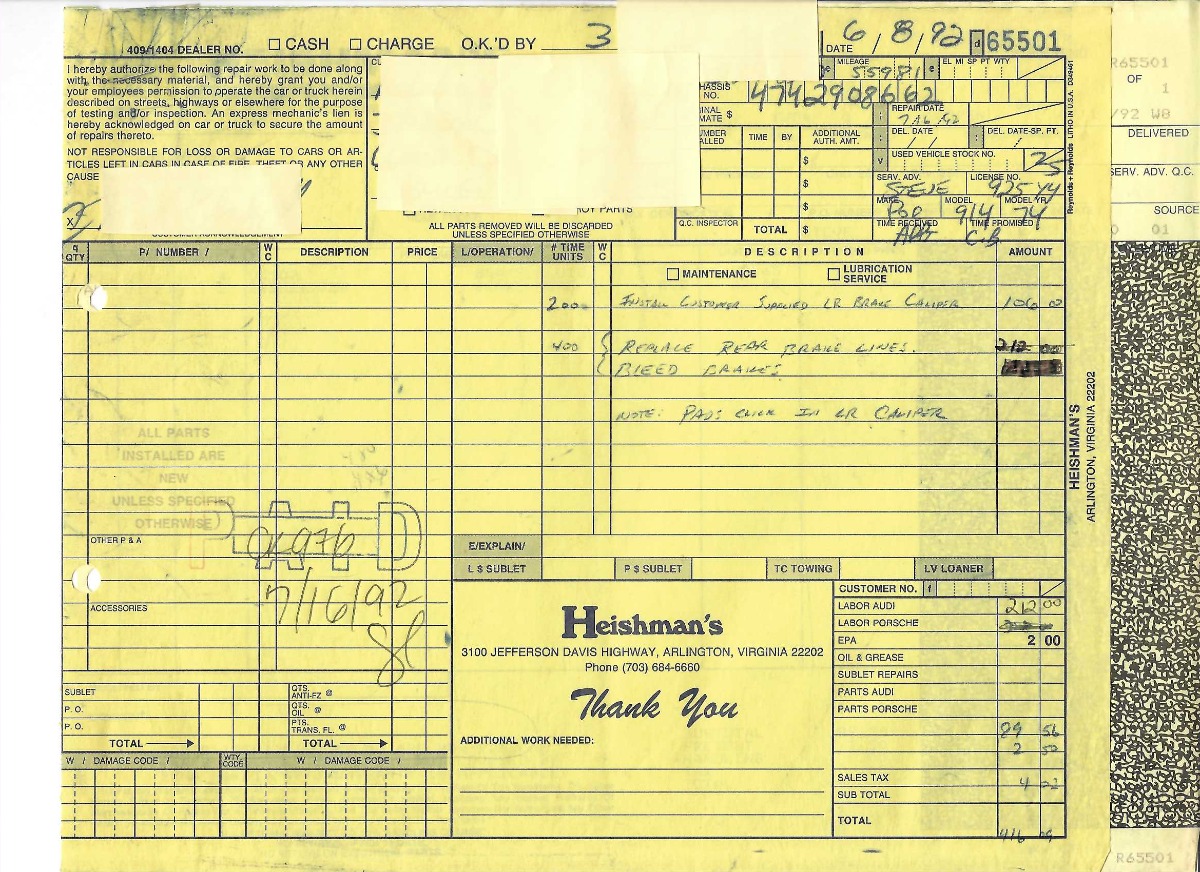 409/1404 DEALER NO. ☐ CASH ☐ CHARGE O.K.'D BY 3
DATE 6/8/92 65501
I hereby authorize the following repair work to be done along
with the necessary material, and hereby grant you and/or
your employees permission to operate the car or truck herein
described on streets, highways or elsewhere for the purpose
of testing and/or inspection. An express mechanic's lien is
hereby acknowledged on car or truck to secure the amount
of repairs thereto.
NOT RESPONSIBLE FOR LOSS OR DAMAGE TO CARS OR AR-
TICLES LEFT IN CARS IN CASE OF FIRE, THEFT OR ANY OTHER
CAUSE
X
CUSTOMER ACKNOWLEDGEMENT
MILEAGE 55981 EL MI SP PT WTY
HASSIS NO. 4742908662
MATE $
REPAIR DATE
DEL. DATE DEL. DATE-SP. PT.
TIME BY ADDITIONAL AUTH. AMT.
$
$
$
USED VEHICLE STOCK NO. 25
SERV. ADV. STEVE LICENSE NO.
MAKE POR MODEL 914 MODEL YR. 74
TIME RECEIVED TIME PROMISED
Q.C. INSPECTOR TOTAL $
ALL PARTS REMOVED WILL BE DISCARDED
UNLESS SPECIFIED OTHERWISE
Reynolds + Reynolds LITHO IN U.S.A.
QTY P/ NUMBER / WC DESCRIPTION PRICE L/OPERATION/ # TIME UNITS WC DESCRIPTION AMOUNT
☐ MAINTENANCE ☐ LUBRICATION SERVICE
200 INSTALL CUSTOMER SUPPLIED LR BRAKE CALIPER 106 00
400 REPLACE REAR BRAKE LINES. 212 00
BLEED BRAKES
NOTE: PADS CLICK IN LR CALIPER
ALL PARTS
INSTALLED ARE
NEW
UNLESS SPECIFIED
OTHERWISE
PAID
7/16/92
OTHER P & A
ACCESSORIES
E/EXPLAIN/
L $ SUBLET P $ SUBLET TC TOWING LV LOANER
Heishman's
3100 JEFFERSON DAVIS HIGHWAY, ARLINGTON, VIRGINIA 22202
Phone (703) 684-6660
Thank You
ADDITIONAL WORK NEEDED:
CUSTOMER NO.
LABOR AUDI 212 00
LABOR PORSCHE
EPA 2 00
OIL & GREASE
SUBLET REPAIRS
PARTS AUDI
PARTS PORSCHE
89 56
2 50
SALES TAX 4 22
SUB TOTAL
TOTAL 416
SUBLET
P. O.
P. O.
TOTAL
QTS. ANTI-FZ @
QTS. OIL @
PTS. TRANS. FL. @
TOTAL
W / DAMAGE CODE / WTY. CODE W / DAMAGE CODE /
HEISHMAN'S
ARLINGTON, VIRGINIA 22202
R65501
OF
1
/92 W8
DELIVERED
SERV. ADV. Q.C.
SOURCE
01
R65501